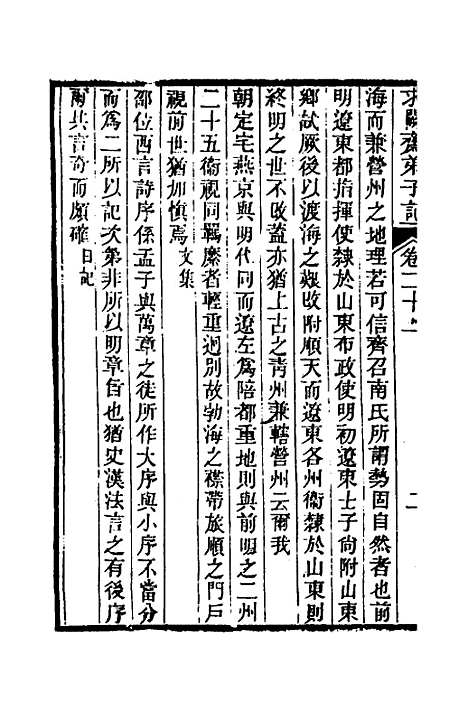 求闕齋弟子記 卷二十二 二
海而兼營州之地理若可信齊召南氏所謂勢固自然者也前
明遼東都指揮使隸於山東布政使明初遼東士子尙附山東
鄉試厥後以渡海之艱改附順天而遼東各州衞隸於山東則
終明之世不改蓋亦猶上古之靑州兼轄營州云爾我
朝定宅燕京與明代同而遼左爲陪都重地則與前明之二州
二十五衞視同羈縻者輕重迥別故勃海之襟帶旅順之門戶
視前世猶加愼焉文集
邵位西言詩序係孟子與萬章之徒所作大序與小序不當分
而爲二所以記次第非所以明章旨也猶史漢法言之有後序
爾其言奇而頗確日記